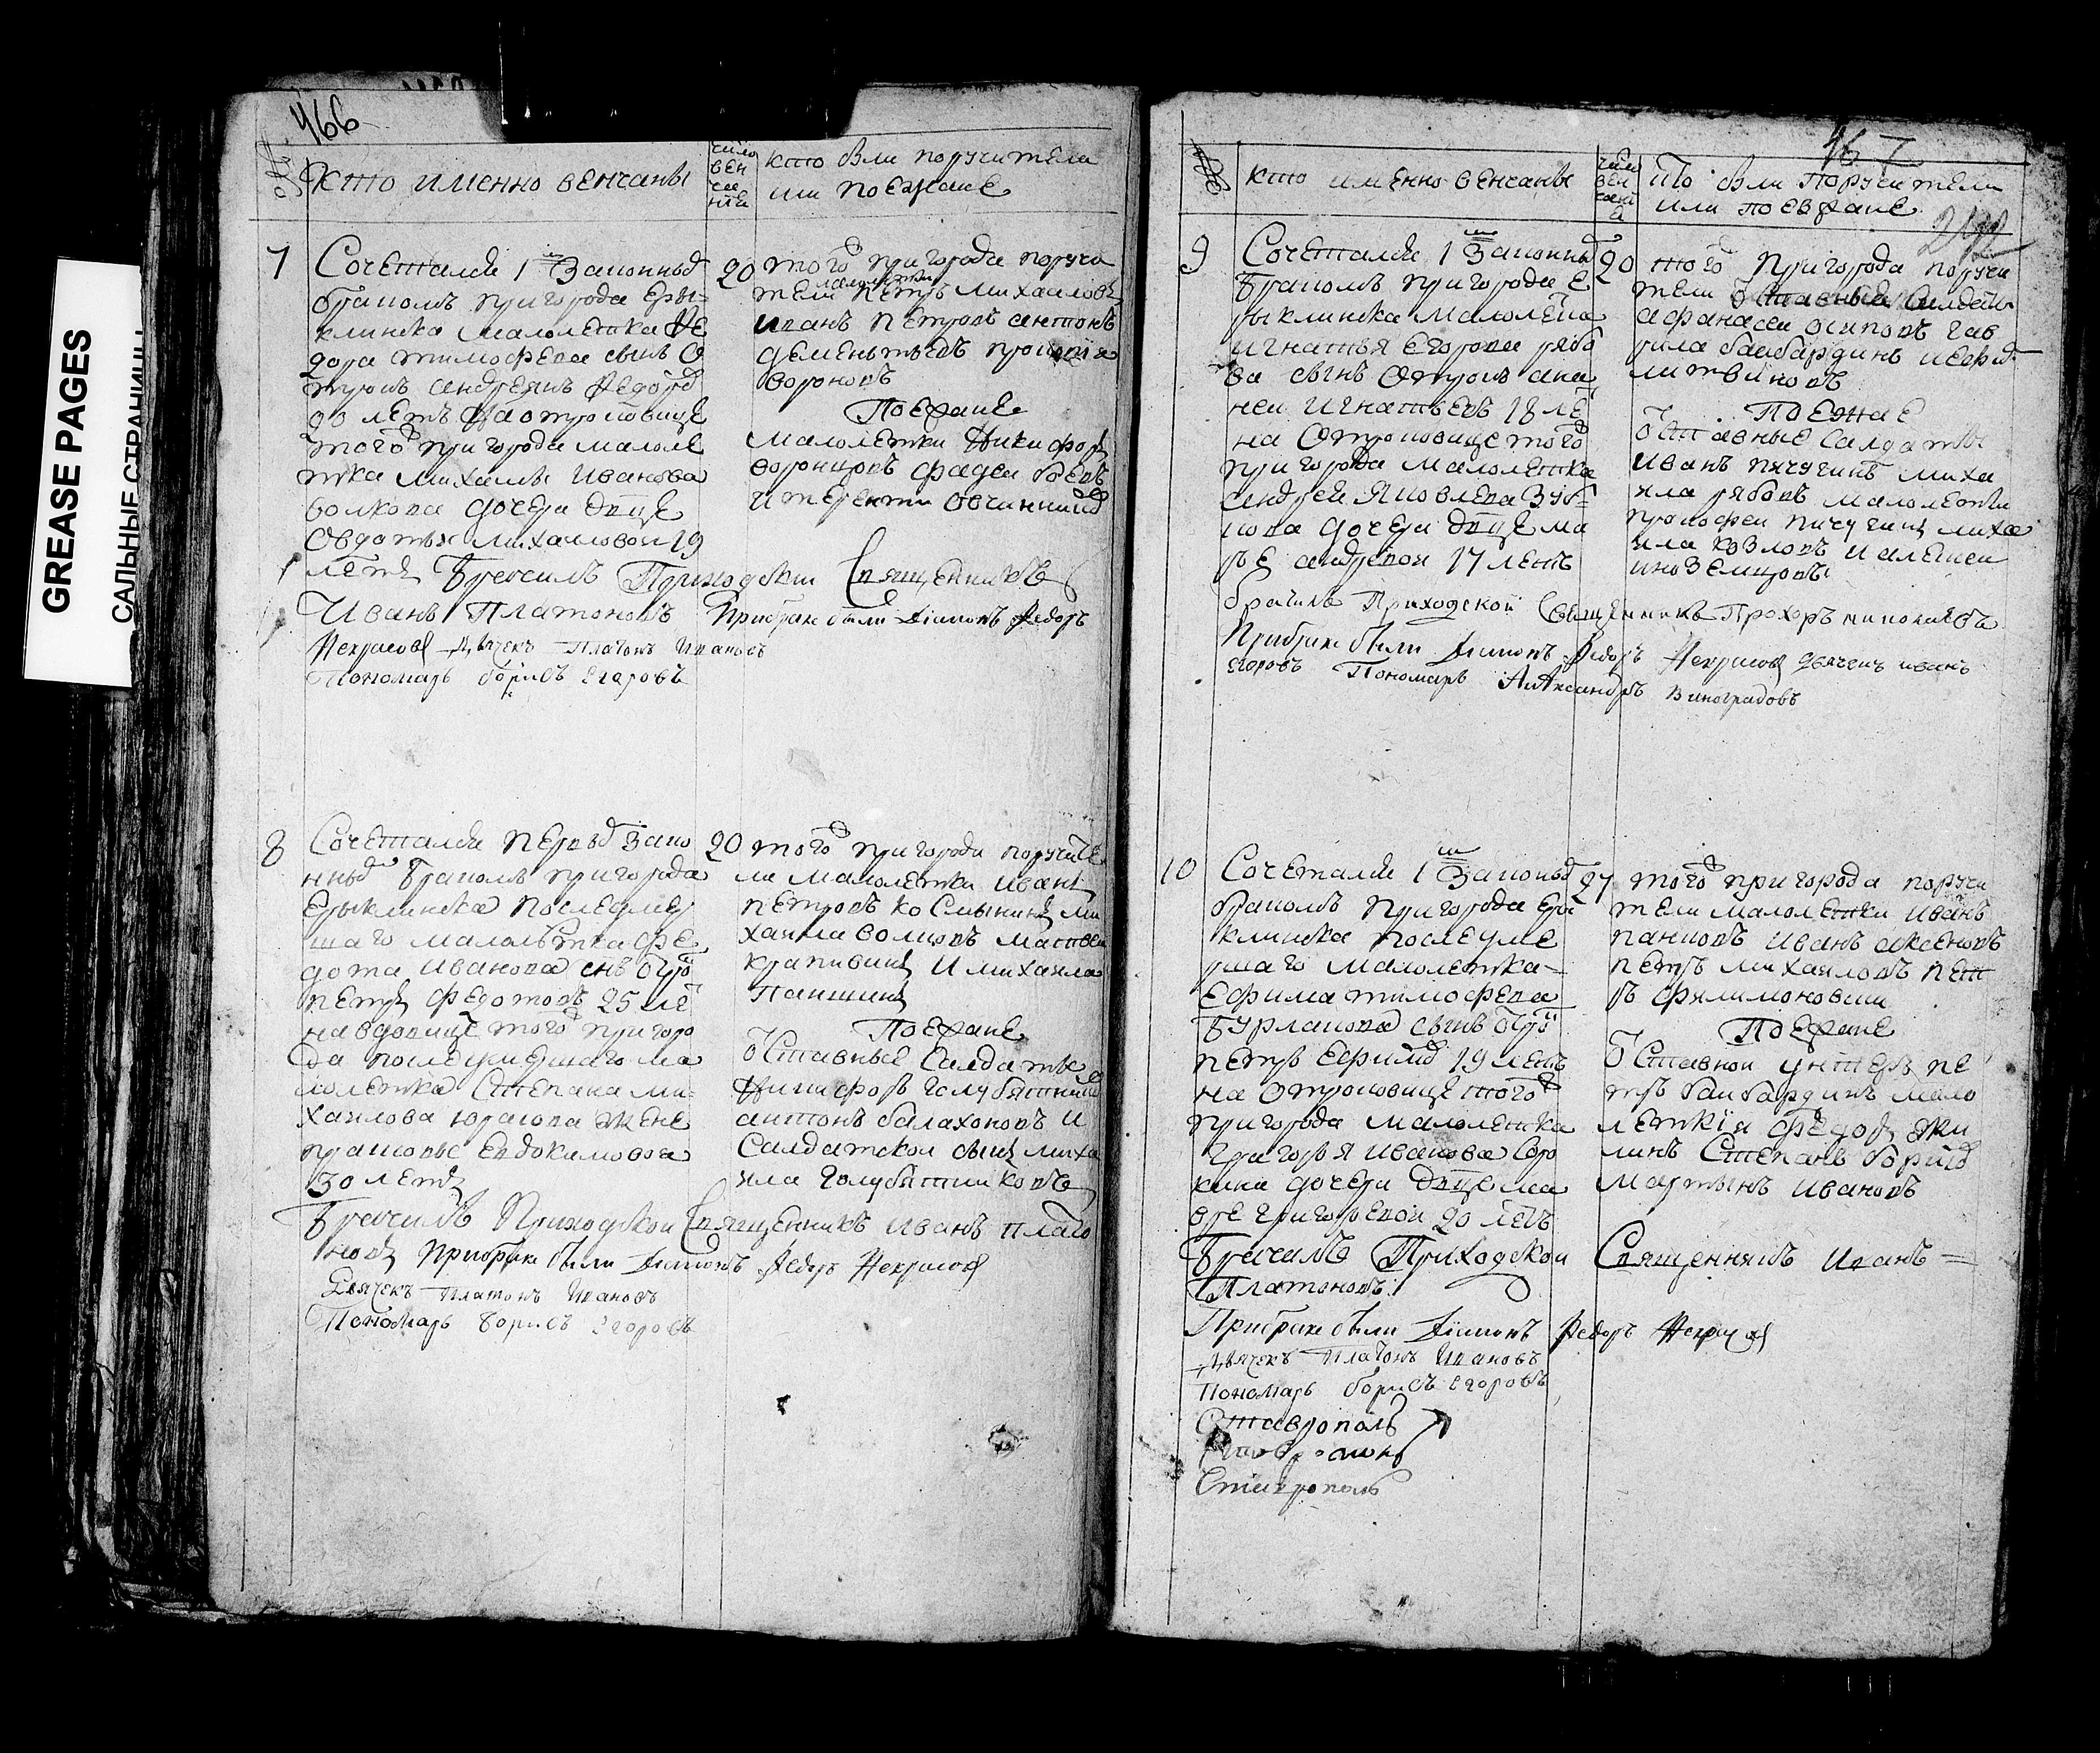 GREASE PAGES
САЛЬНЫЕ СТРАНИЦЫ
466
кто именно венчаны
число вен чания
кто были поручители
или поезжане
7
Сочетался 1 м законным
браком пригорода еры-
клинска малолетка Фе
дора тимофеева сынъ о
трокъ андреянъ Федоров
летъ на отроковице
того пригорода малоле
тка михаилы иванова
волкова дочери девице
овдотье михаиловой 19
летъ Брачилъ Приходски Священникъ
Иванъ Платоновъ
При браке были Диаконъ Федоръ
Некрасовъ Дьячекъ Платонъ Ивановъ
Пономарь борисъ Егоровъ
20
того пригорода поручи
малолетки
тели петръ михаиловъ
иванъ петровъ антонъ
дементьевъ
вороновъ
Поезжане
малолетки Никифоръ
воронцовъ фадеи
и терентей овчинников
8
Сочетался первым зако
нным браком пригорода
Ерыклинска после умер
шаго малолетка фе
дота иванова снъ отро
петръ федотовъ 25 ле
на вдовице того пригоро
да после умершаго ма
лолетка Степана ми-
хаилова юракова жене
прасковье Евдокимовой
30 летъ
Брачилъ Приходской Священникъ иванъ плато
новъ При браке были Диаконъ Федоръ Некрасовъ
Дьячекъ Платонъ Ивановъ
Пономарь борисъ Егоровъ
20
того пригорода поручите
ли малолетки иванъ
петровъ космынинъ ми
хаила волковъ матвеи
крапивинъ и михаила
Паншинъ
Поезжане
отставные солдаты
Никифоръ голубятников
антонъ балахоновъ и
Салдатской сынъ миха
ила голубятниковъ
467
кто именно венчаны
число вен чания
кто были поручители
или поезжане
9
Сочетался 1 м законны
браком пригорода Е
рыклинска малолетка
игнатья егорова рябо
ва сынъ отрокъ ана
неи игнатьевъ 18 ле
на отроковице того
пригорода малолетка
андрея яковлева Зуб-
кова дочери девице ма
ре андревой 17 летъ
брачилъ Приходской Священникъ Прохоръ николаевъ
При браке были Диаконъ Федоръ Некрасовъ дьячекъ иванъ
егоровъ Пономарь Александръ Виноградовъ
20
того пригорода поручи
тели отставные салдаты
афанасеи осиповъ гав
рила банбардинъ
литвиновъ
Поезжане
отставные салдаты
иванъ пичугинъ миха
ила рябовъ малолетки
прокофеи пичугинъ миха
ила козловъ и алексеи
иноземцовъ
10
Сочетался 1 м законым
браком пригорода Еры
клинска после уме
ршаго малолетка-
Ефима тимофеева
Бурлакова сынъ отро
петръ Ефимов 19 летъ
на отроковице того
пригорода малолетка
григорья иванова Соро
кина дочери девице ма
вре григоревой 20 летъ
Брачилъ Приходской Священникъ иванъ=
Платоновъ
При браке были Диаконъ Федоръ Некрасовъ
Дьячекъ Платонъ Ивановъ
Пономарь борисъ Егоровъ
Ставрополь
Ставрополь
27
того пригорода поручи
тели малолетки иванъ
панковъ иванъ аксеновъ
петръ михаиловъ пет
ръ филимоновъ
Поезжане
отставной унтеръ пе
тръ банбардинъ мало
летки федоръ
линъ Степанъ борисов
мартынъ ивановъ